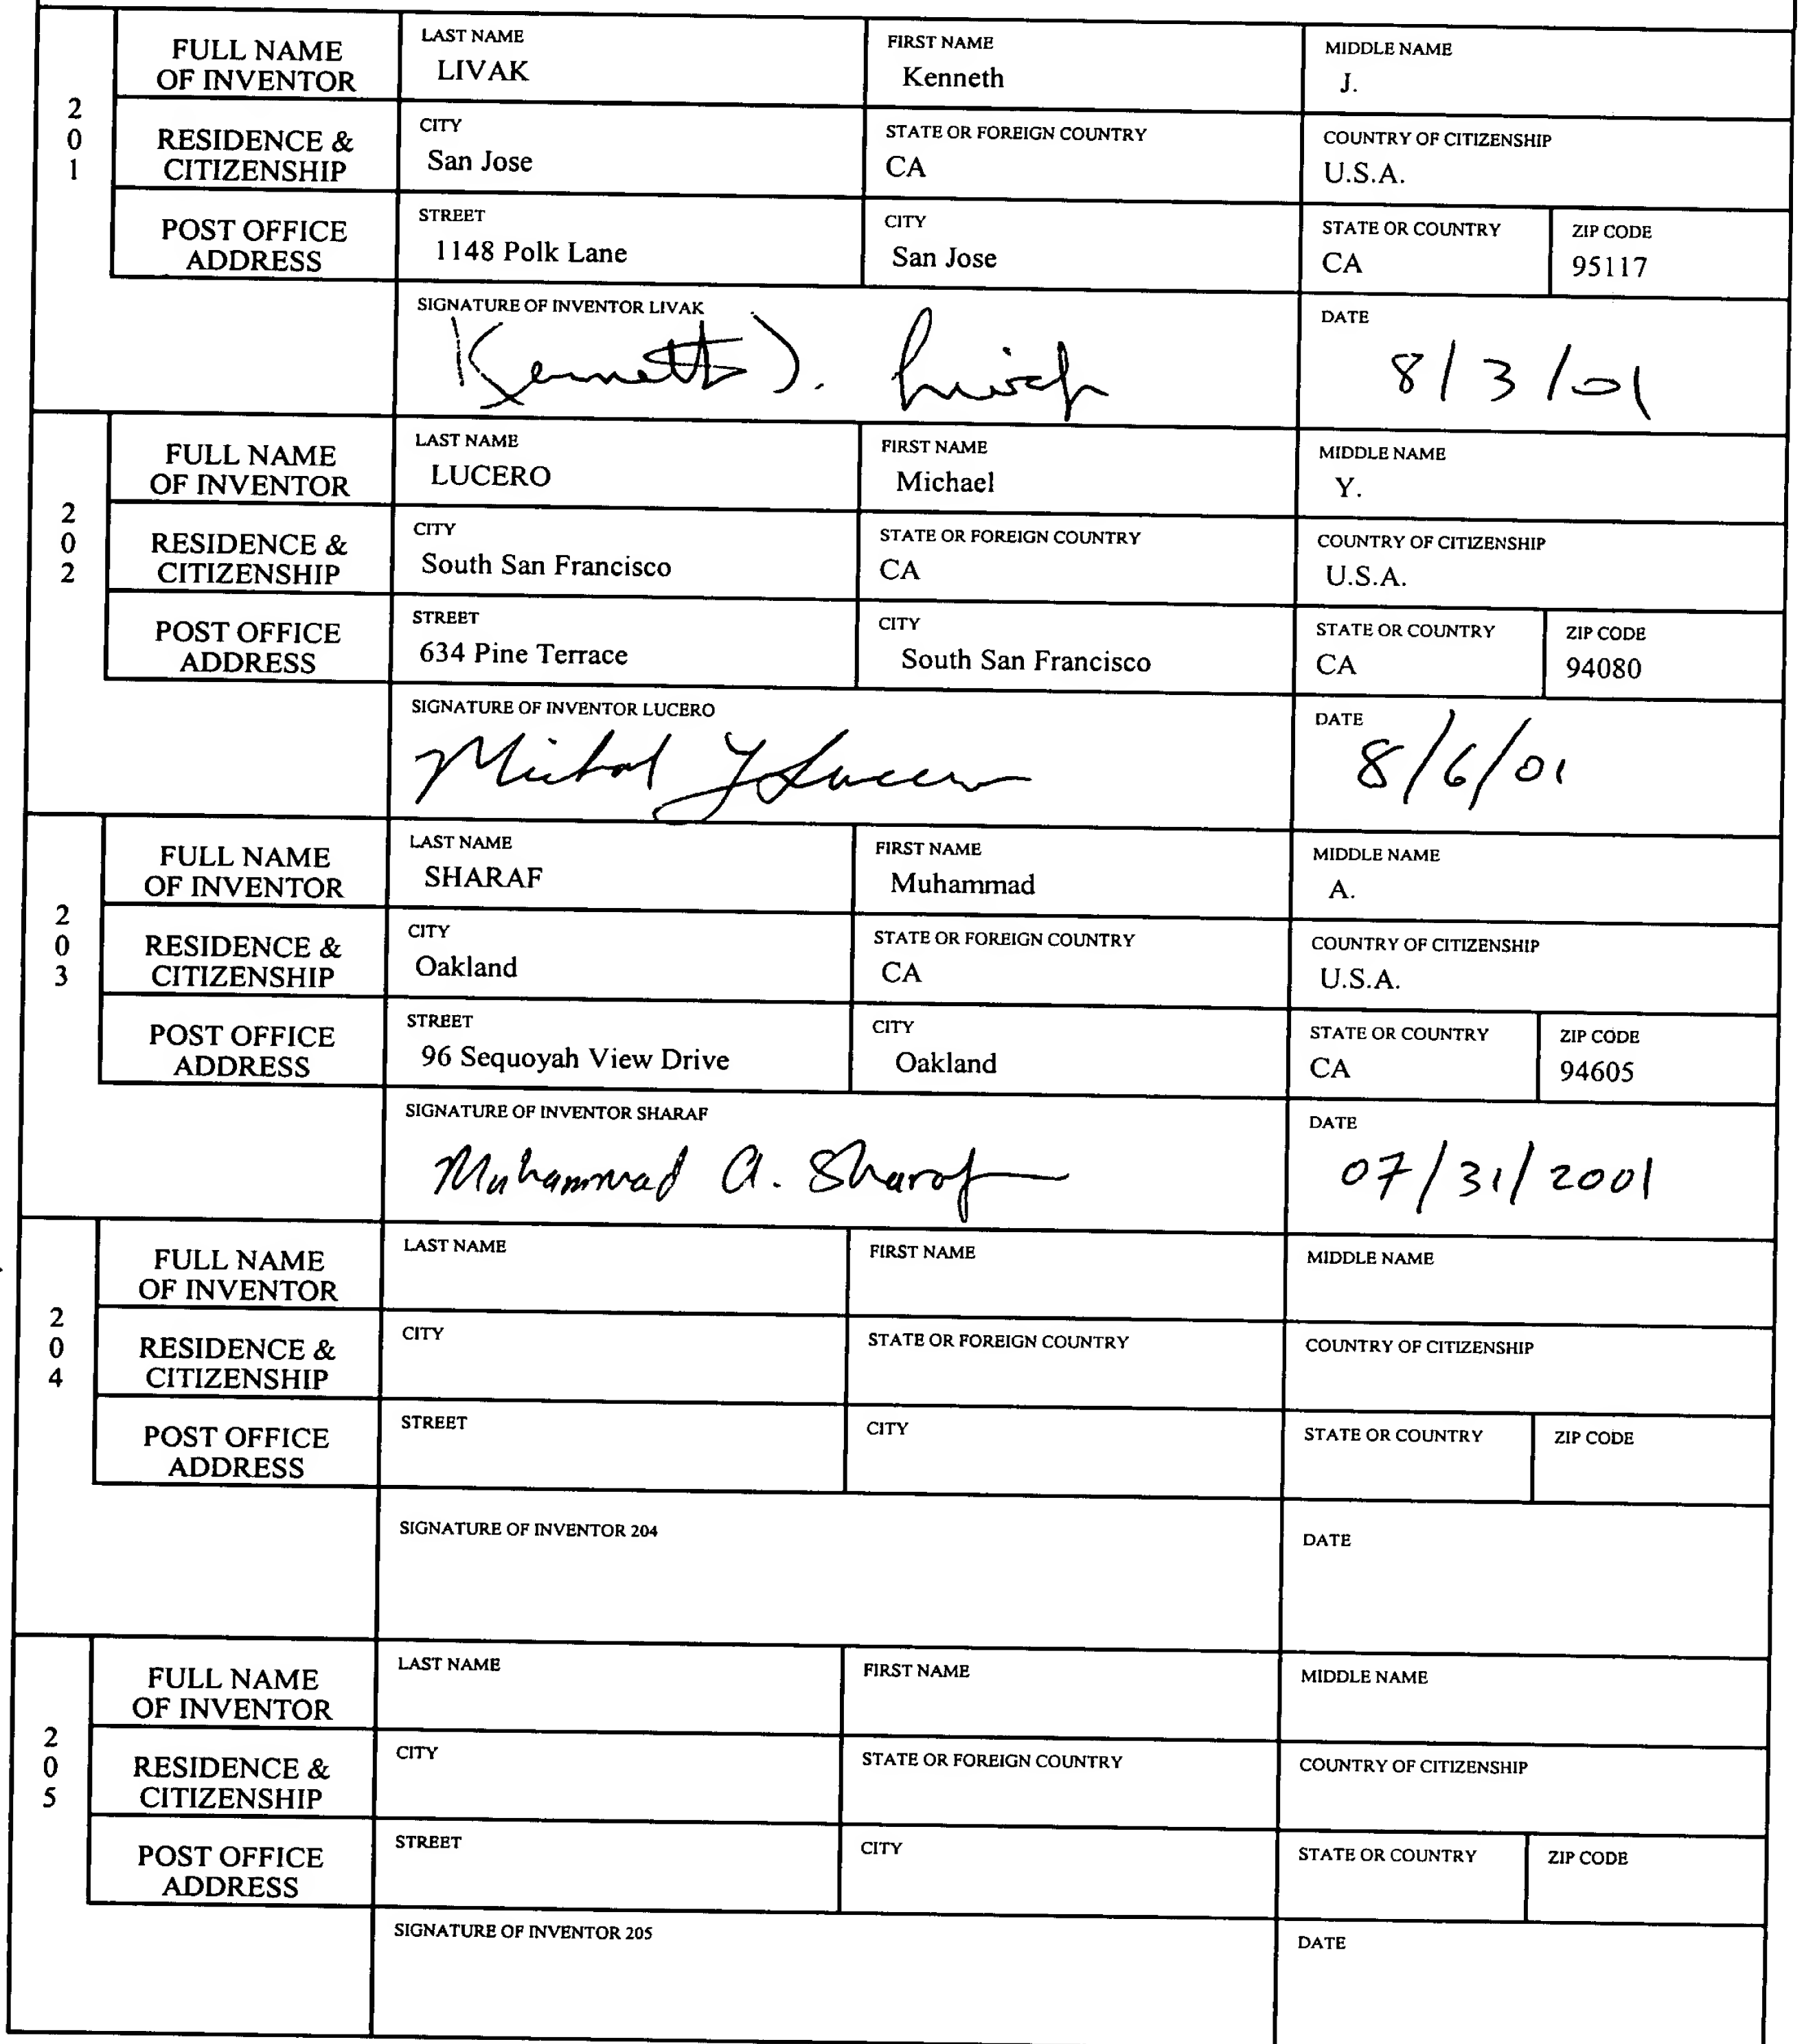 201
FULL NAME OF INVENTOR
LAST NAME
LIVAK
FIRST NAME
Kenneth
MIDDLE NAME
J.
RESIDENCE & CITIZENSHIP
CITY
San Jose
STATE OR FOREIGN COUNTRY
CA
COUNTRY OF CITIZENSHIP
U.S.A.
POST OFFICE ADDRESS
STREET
1148 Polk Lane
CITY
San Jose
STATE OR COUNTRY
CA
ZIP CODE
95117
SIGNATURE OF INVENTOR LIVAK
Kenneth J. Livak
DATE
8/3/01
202
FULL NAME OF INVENTOR
LAST NAME
LUCERO
FIRST NAME
Michael
MIDDLE NAME
Y.
RESIDENCE & CITIZENSHIP
CITY
South San Francisco
STATE OR FOREIGN COUNTRY
CA
COUNTRY OF CITIZENSHIP
U.S.A.
POST OFFICE ADDRESS
STREET
634 Pine Terrace
CITY
South San Francisco
STATE OR COUNTRY
CA
ZIP CODE
94080
SIGNATURE OF INVENTOR LUCERO
Michael Y Lucero
DATE
8/6/01
203
FULL NAME OF INVENTOR
LAST NAME
SHARAF
FIRST NAME
Muhammad
MIDDLE NAME
A.
RESIDENCE & CITIZENSHIP
CITY
Oakland
STATE OR FOREIGN COUNTRY
CA
COUNTRY OF CITIZENSHIP
U.S.A.
POST OFFICE ADDRESS
STREET
96 Sequoyah View Drive
CITY
Oakland
STATE OR COUNTRY
CA
ZIP CODE
94605
SIGNATURE OF INVENTOR SHARAF
Muhammad A. Sharaf
DATE
07/31/2001
204
FULL NAME OF INVENTOR
LAST NAME
FIRST NAME
MIDDLE NAME
RESIDENCE & CITIZENSHIP
CITY
STATE OR FOREIGN COUNTRY
COUNTRY OF CITIZENSHIP
POST OFFICE ADDRESS
STREET
CITY
STATE OR COUNTRY
ZIP CODE
SIGNATURE OF INVENTOR 204
DATE
205
FULL NAME OF INVENTOR
LAST NAME
FIRST NAME
MIDDLE NAME
RESIDENCE & CITIZENSHIP
CITY
STATE OR FOREIGN COUNTRY
COUNTRY OF CITIZENSHIP
POST OFFICE ADDRESS
STREET
CITY
STATE OR COUNTRY
ZIP CODE
SIGNATURE OF INVENTOR 205
DATE